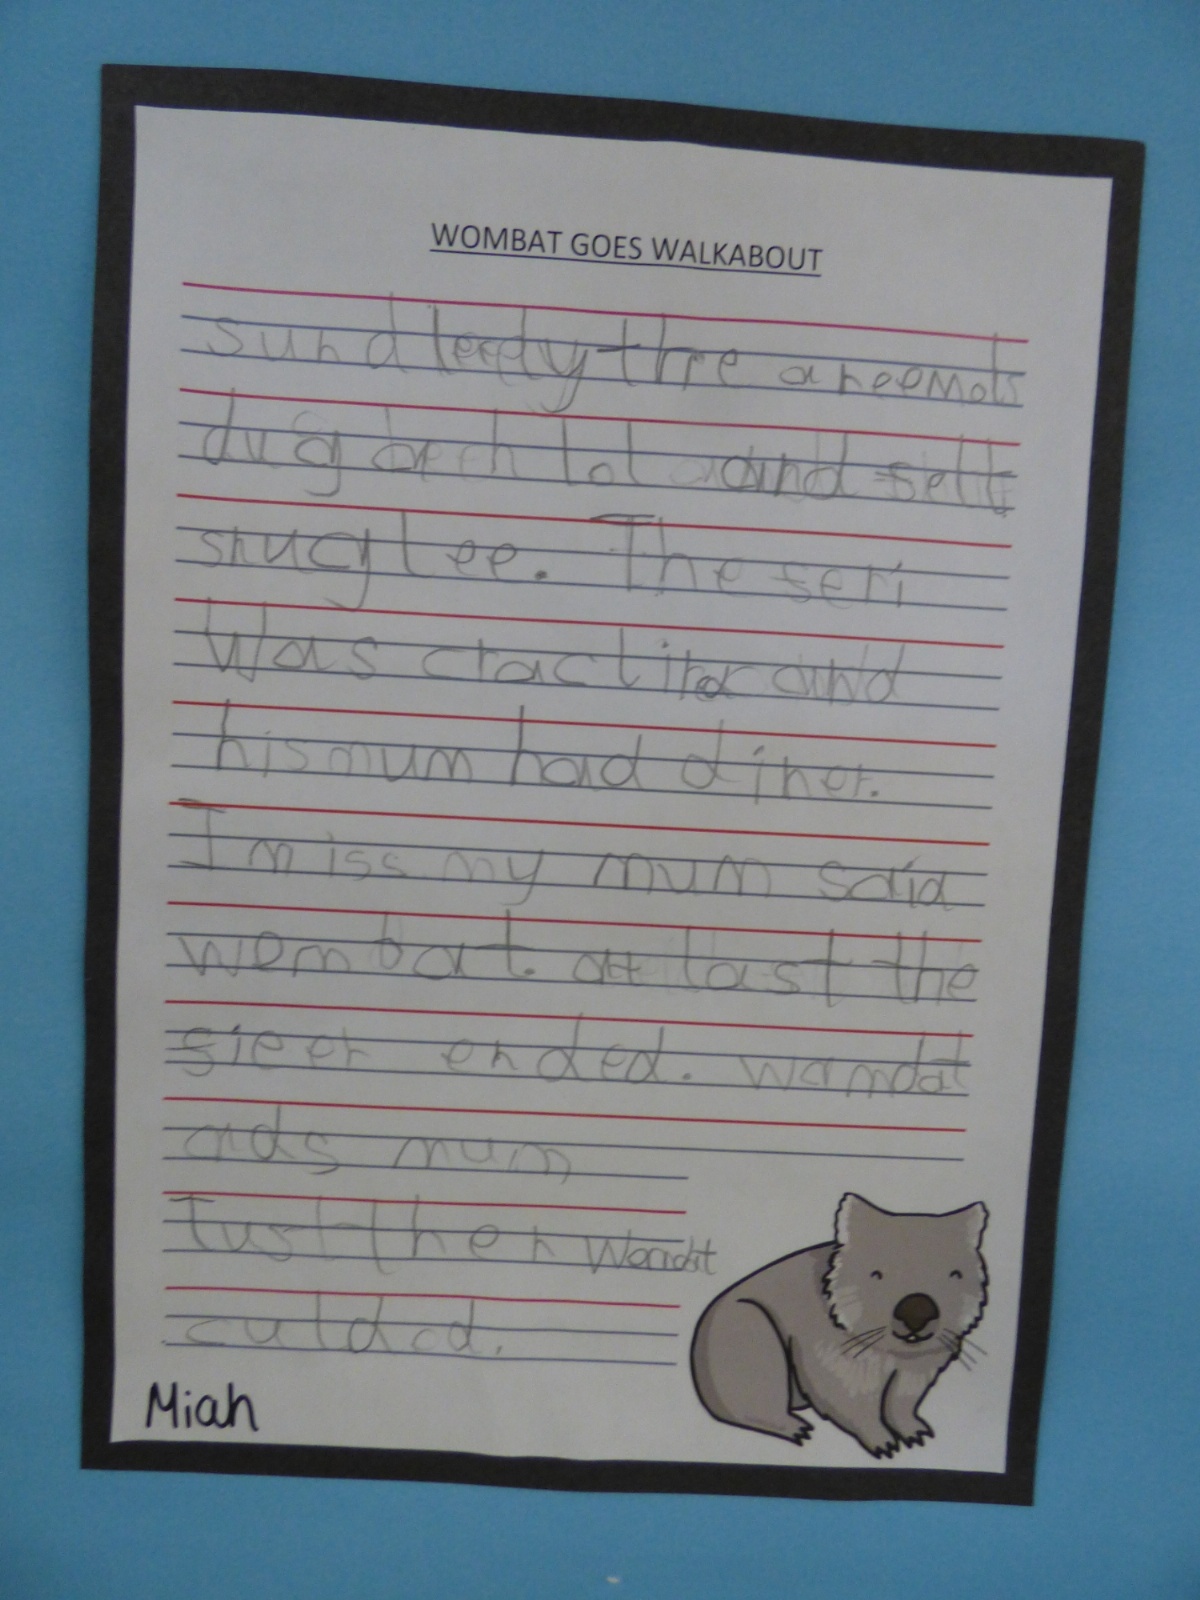 WOMBAT GOES WALKABOUT
sundleedy the aneemols
dug deeh lol and selt
snuglee. The feri
Was craclina and
his mum had diner.
I miss my mum said
wombat. att last the
gieer ended. wambat
ads mum
Tust then Wombat
culdcd.
Miah